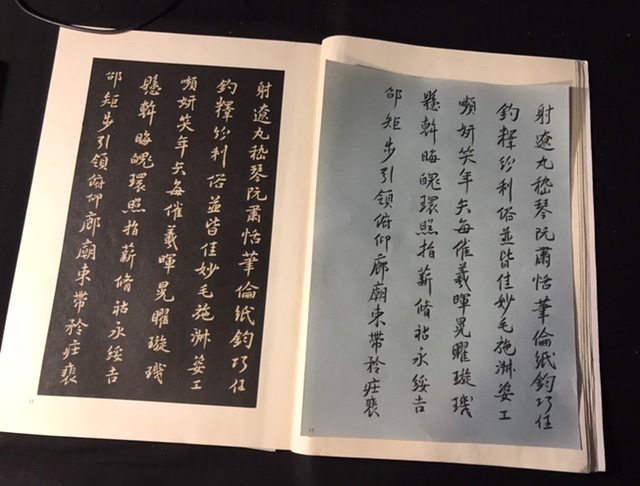 射遼丸嵇琴阮肅恬筆倫紙鈞巧任
釣釋紛利俗並皆佳妙毛施淑姿工
嚬妍笑年矢每催羲暉晃曜璇璣
懸斡晦魄環照指薪脩祜永綏吉
邵矩步引領俯仰廊廟束帶矜莊裴
射遼丸嵇琴阮肅恬筆倫紙鈞巧任
釣釋紛利俗並皆佳妙毛施淑姿工
嚬妍笑年矢每催羲暉晃曜璇璣
懸斡晦魄環照指薪脩祜永綏吉
邵矩步引領俯仰廊廟束帶矜莊裴